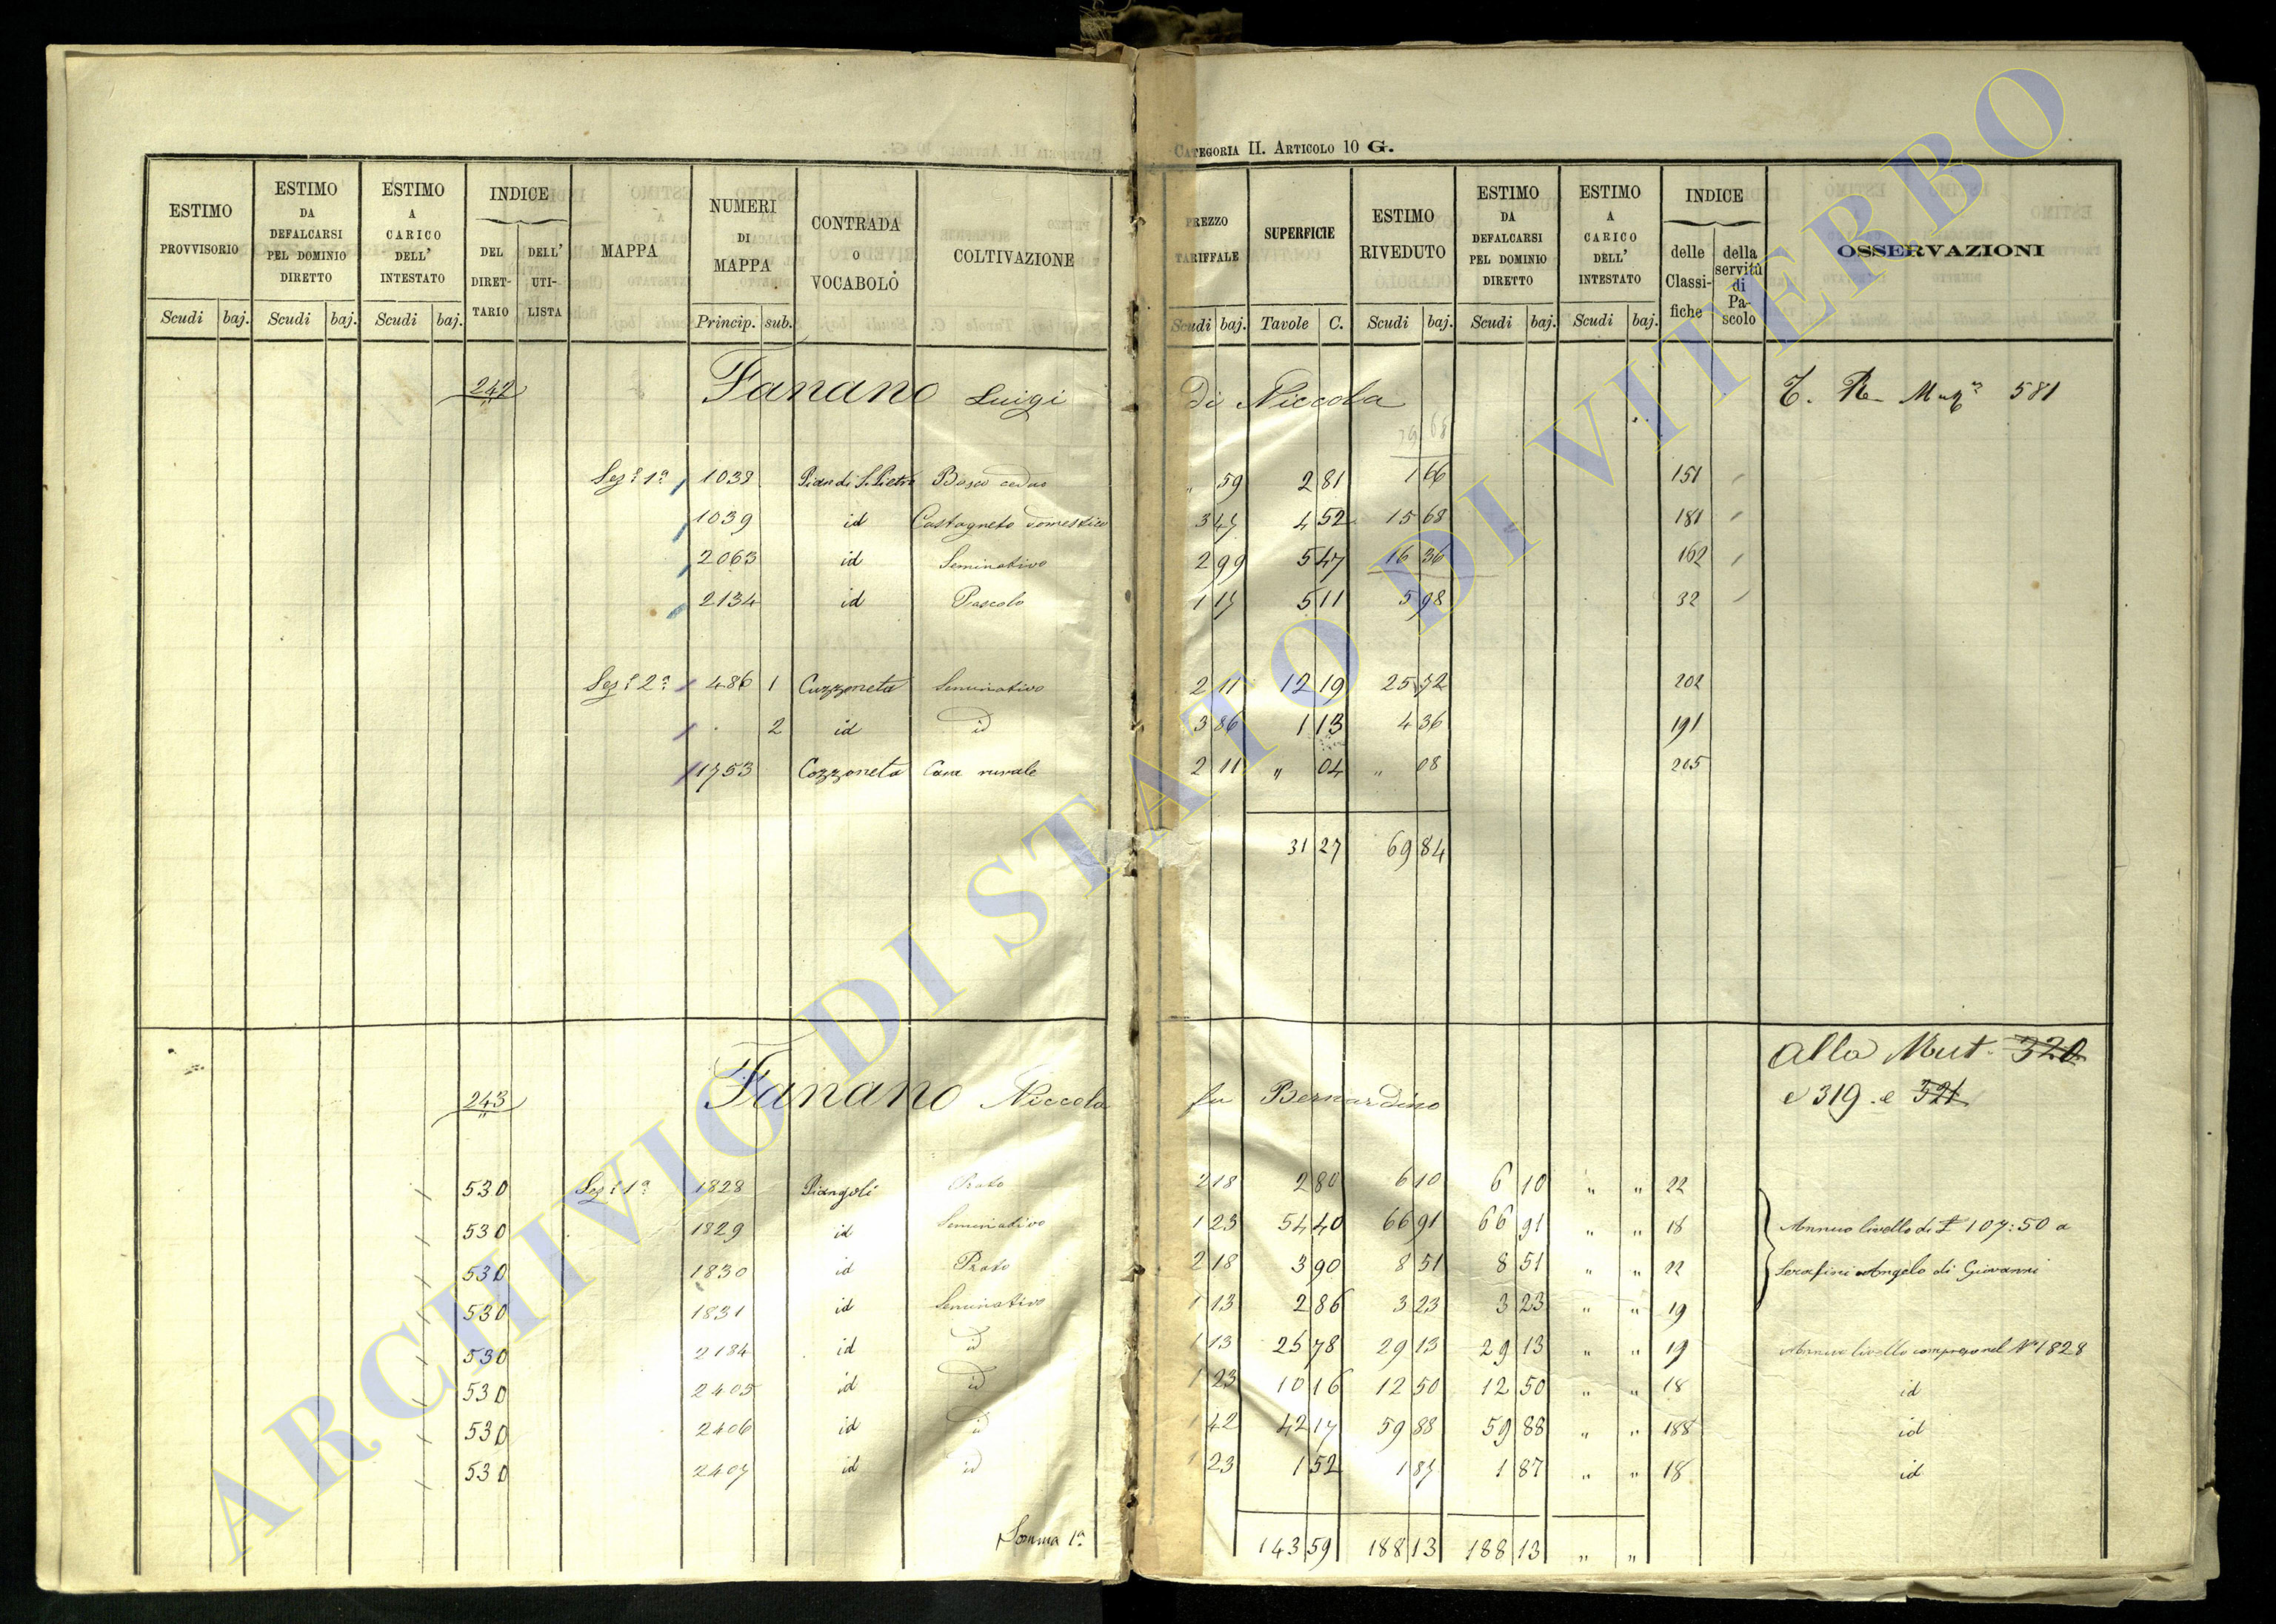 CATEGORIA II. ARTICOLO 10 G.
ESTIMO PROVVISORIO Scudi baj.
ESTIMO DA DEFALCARSI PEL DOMINIO DIRETTO Scudi baj.
ESTIMO A CARICO DELL' INTESTATO Scudi baj.
INDICE DEL DIRETTARIO DELL' UTILISTA
MAPPA
NUMERI DI MAPPA Princip. sub.
CONTRADA O VOCABOLO
COLTIVAZIONE
PREZZO TARIFFALE Scudi baj.
SUPERFICIE Tavole C.
ESTIMO RIVEDUTO Scudi baj.
ESTIMO DA DEFALCARSI PEL DOMINIO DIRETTO Scudi baj.
ESTIMO A CARICO DELL' INTESTATO Scudi baj.
INDICE delle Classifiche della servitù di Pascolo
OSSERVAZIONI
242 Fanano Luigi di Niccola 581
Sez. 1a 1038 Pian di S. Pietro Bosco ceduo " 59 2 81 1 66 151
1039 id Castagneto domestico 3 47 4 52 15 68 181
2063 id Seminativo 2 99 5 47 16 36 162
2134 id Pascolo 1 17 5 11 5 98 32
Sez. 2a 486 1 Cuzzoneta Seminativo 2 11 12 19 25 72 202
2 id id 3 86 1 13 4 36 191
1753 Cozzoneta Casa rurale 2 11 " 04 " 08 205
31 27 69 84
Alla Mut. 320
e 319 e 321
243 Fanano Niccola fu Bernardino
530 Sez. 1a 1828 Piangoli Prato 2 18 2 80 6 10 6 10 " " 22
530 1829 id Seminativo 1 23 54 40 66 91 66 91 " " 18 Annuo livello di £ 107:50 a
530 1830 id Prato 2 18 3 90 8 51 8 51 " " 22 Serafini Angelo di Giovanni
530 1831 id Seminativo 1 13 2 86 3 23 3 23 " " 19
530 2184 id id 1 13 25 78 29 13 29 13 " " 19 Annuo livello compreso nel No 1828
530 2405 id id 1 23 10 16 12 50 12 50 " " 18 id
530 2406 id id 1 42 42 17 59 88 59 88 " " 188 id
530 2407 id id 1 23 1 52 1 87 1 87 " " 18 id
Somma 1a 143 59 188 13 188 13 " "
ARCHIVIO DI STATO DI VITERBO